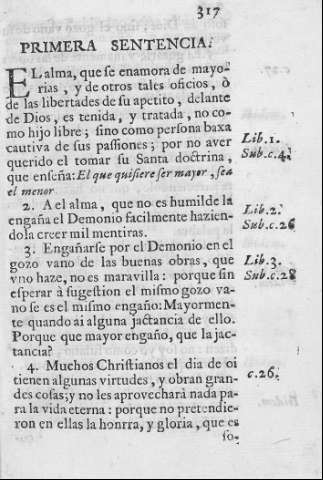 317
PRIMERA SENTENCIA.
EL alma, que se enamora de mayo-
rias, y de otros tales oficios, ò
de las libertades de su apetito, delante
de Dios, es tenida, y tratada, no co-
mo hijo libre; sino como persona baxa
cautiva de sus passiones; por no aver
querido el tomar su Santa doctrina,
que enseña: El que quisiere ser mayor, sea
el menor
Lib. 1.
Sub. c. 4.
2. A el alma, que no es humilde la
engaña el Demonio facilmente hazien-
dola creer mil mentiras.
Lib. 2.
Sub. c. 26
3. Engañarse por el Demonio en el
gozo vano de las buenas obras, que
vno haze, no es maravilla: porque sin
esperar à sugestion el mismo gozo va-
no se es el mismo engaño: Mayormen-
te quando ai alguna jactancia de ello.
Porque que mayor engaño, que la jac-
tancia?
Lib. 3.
Sub. c. 28
4. Muchos Christianos el dia de oi
tienen algunas virtudes, y obran gran-
des cosas; y no les aprovecharà nada pa-
ra la vida eterna: porque no pretendie-
ron en ellas la honrra, y gloria, que es
so-
c. 26.